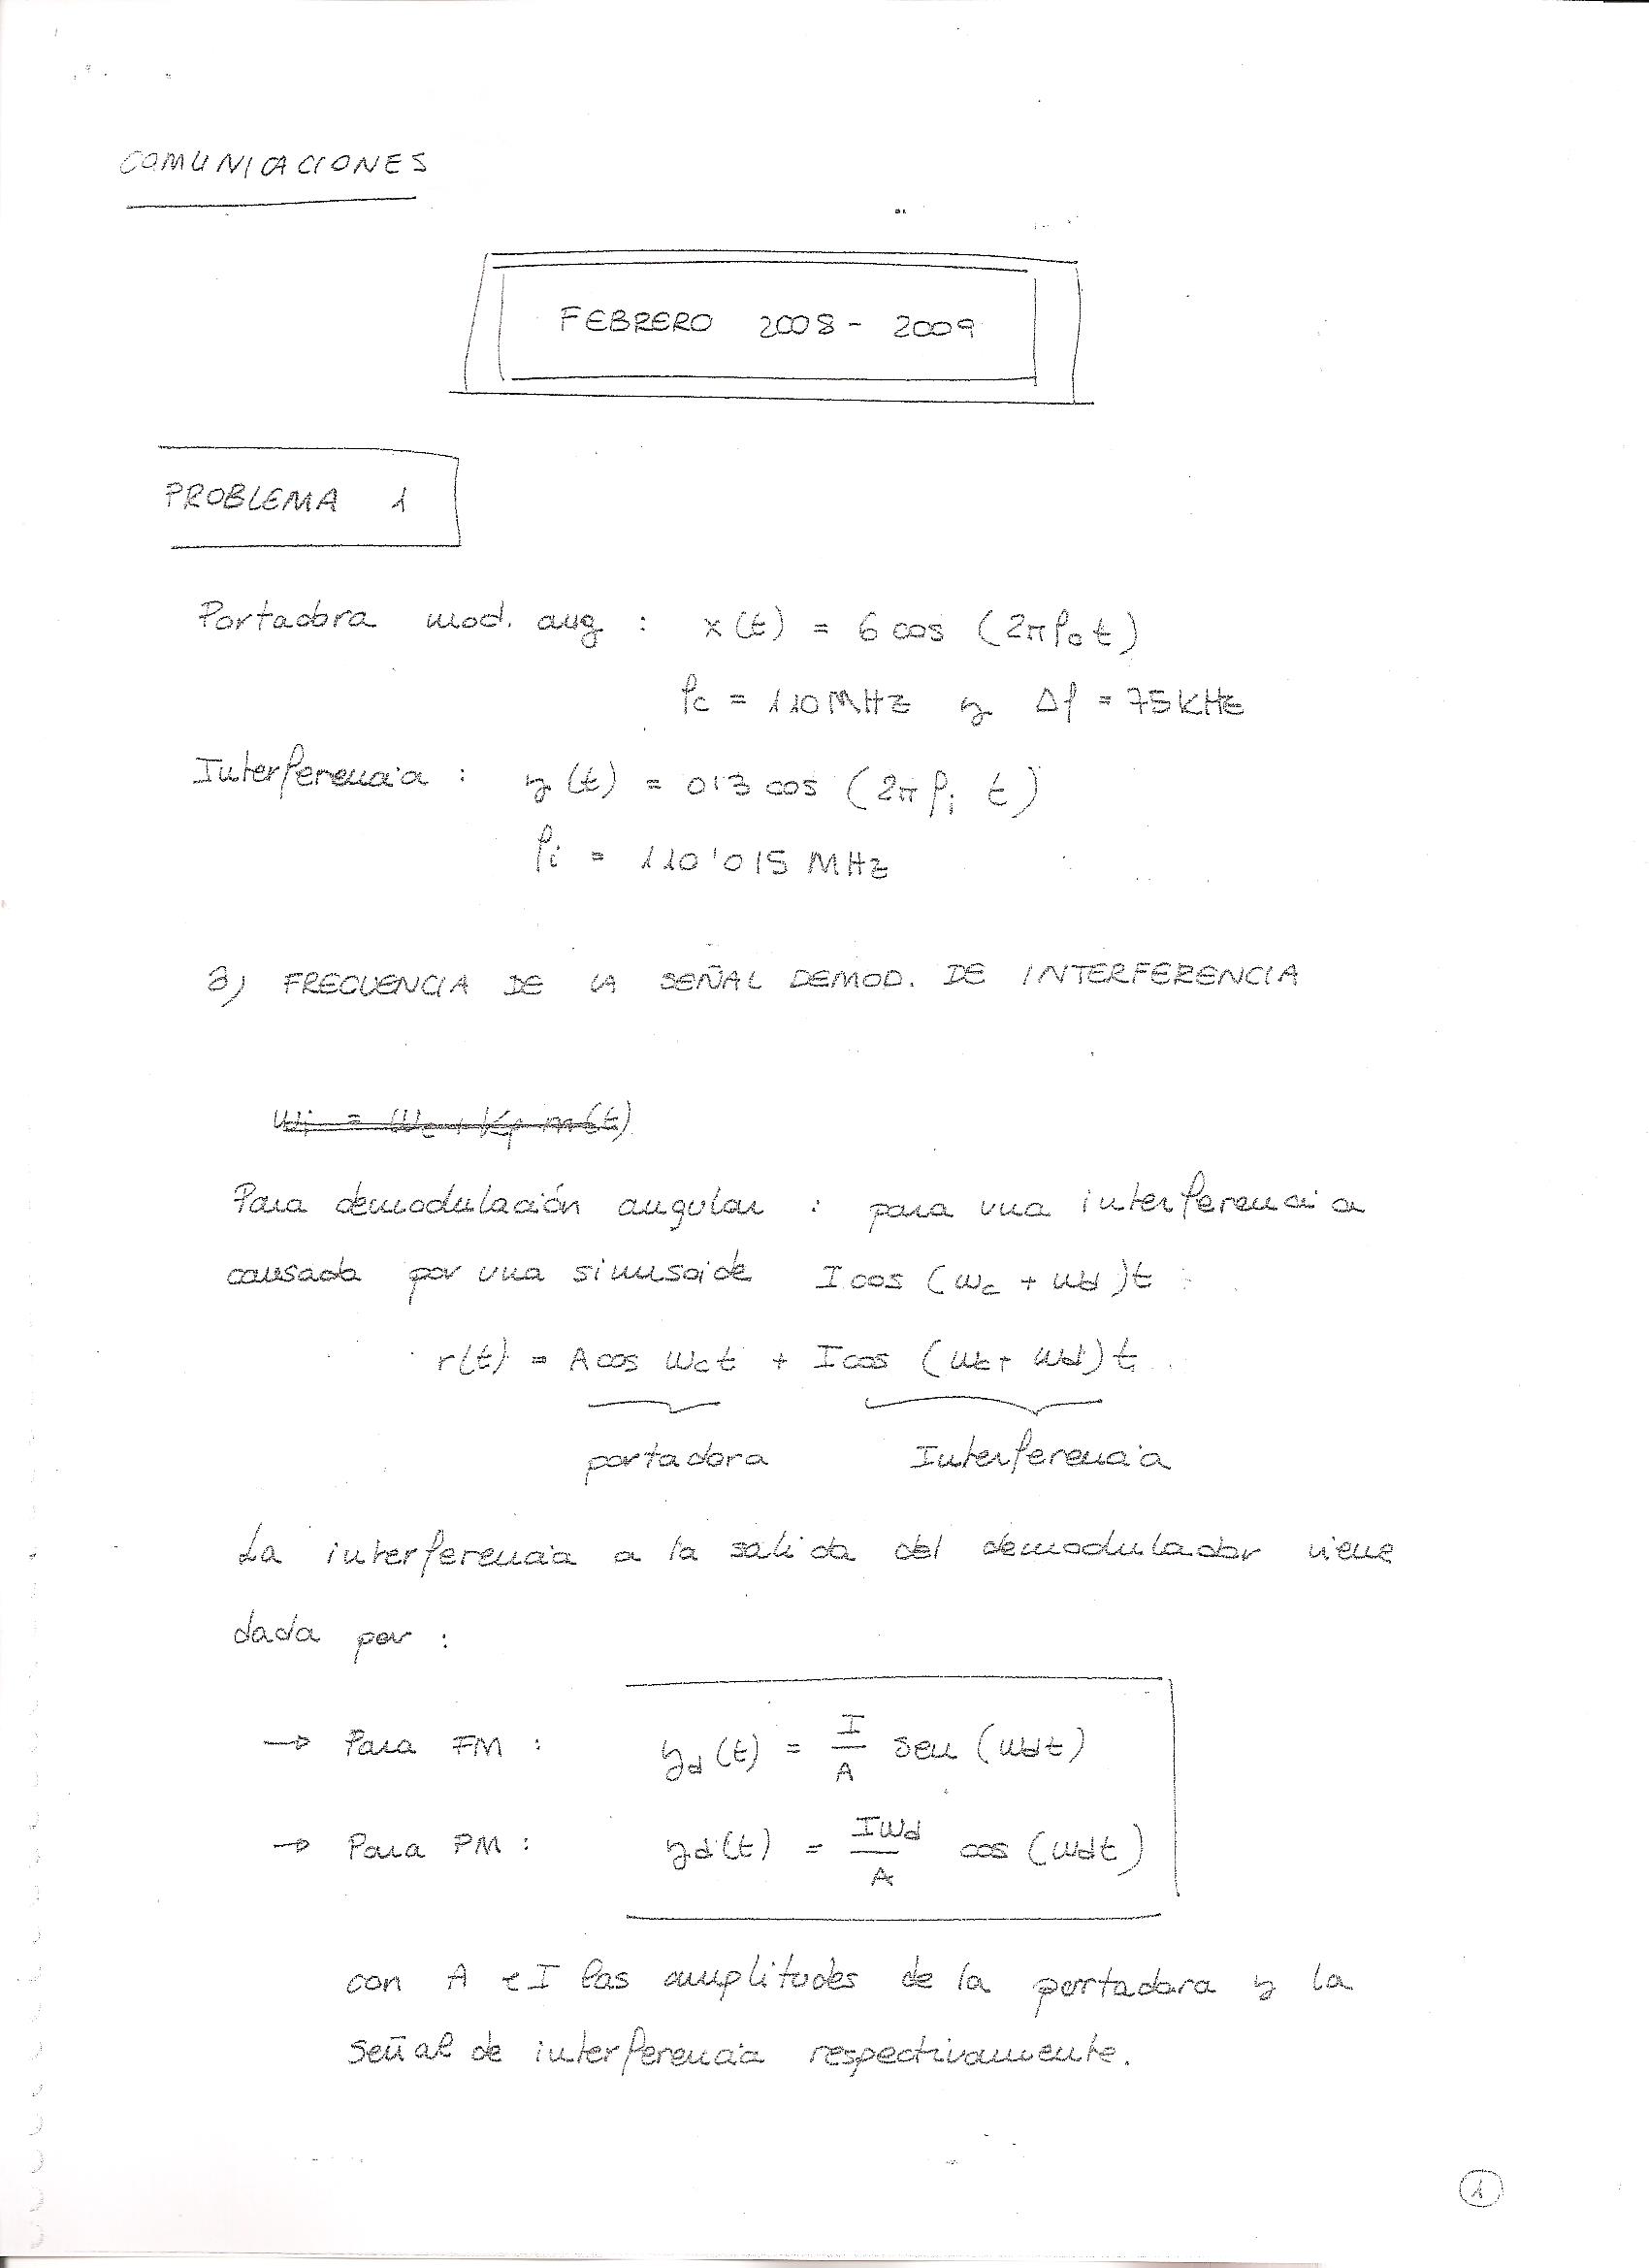 COMUNICACIONES
FEBRERO 2008 - 2009
PROBLEMA 1
Portadora mod. ang : x(t) = 6 cos (2πfct)
fc = 110 MHz y Δf = 75 KHz
Interferencia : y(t) = 0'3 cos (2π fi t)
fi = 110'015 MHz
a) FRECUENCIA DE LA SEÑAL DEMOD. DE INTERFERENCIA
Para demodulación angular : para una interferencia
causada por una sinusoide I cos (ωc + ωd)t :
r(t) = A cos ωct + I cos (ωc + ωd)t
portadora Interferencia
La interferencia a la salida del demodulador viene
dada por :
→ Para FM : yd(t) = I/A sen (ωdt)
→ Para PM : yd(t) = Iωd/A cos (ωdt)
con A e I las amplitudes de la portadora y la
señal de interferencia respectivamente.
1